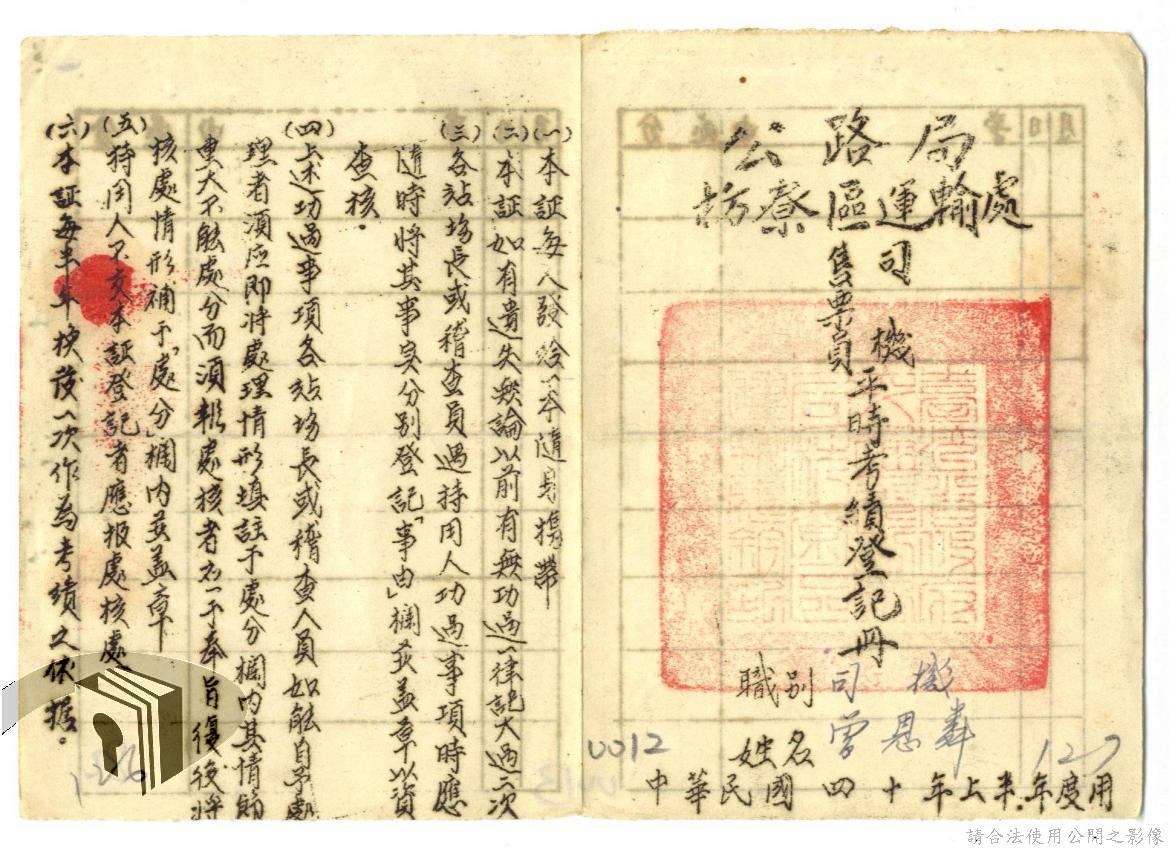 公路局
枋寮區運輸處
司機
售票員
平時考績登記冊
職別 司機
姓名 曾恩
0012
127
中華民國四十年上半年度用
(一)本証每人發給一本隨身携帶
(二)本証如有遺失無論以前有無功過一律記大過二次
(三)各站場長或稽查員遇持用人功過事項時應
隨時將其事实分別登記「事由」欄並盖章以資
查核．
(四)上述功過事項各站場長或稽查人員如能自予處
理者須应即將處理情形填註于處分欄內其情節
重大不能處分而須報處核者於奉旨復後將
核處情形補于「處分」欄內並盖章
(五)持用人不交本証登記者應报處核處
(六)本証每半年換發一次作為考績之依据。
請合法使用公開之影像